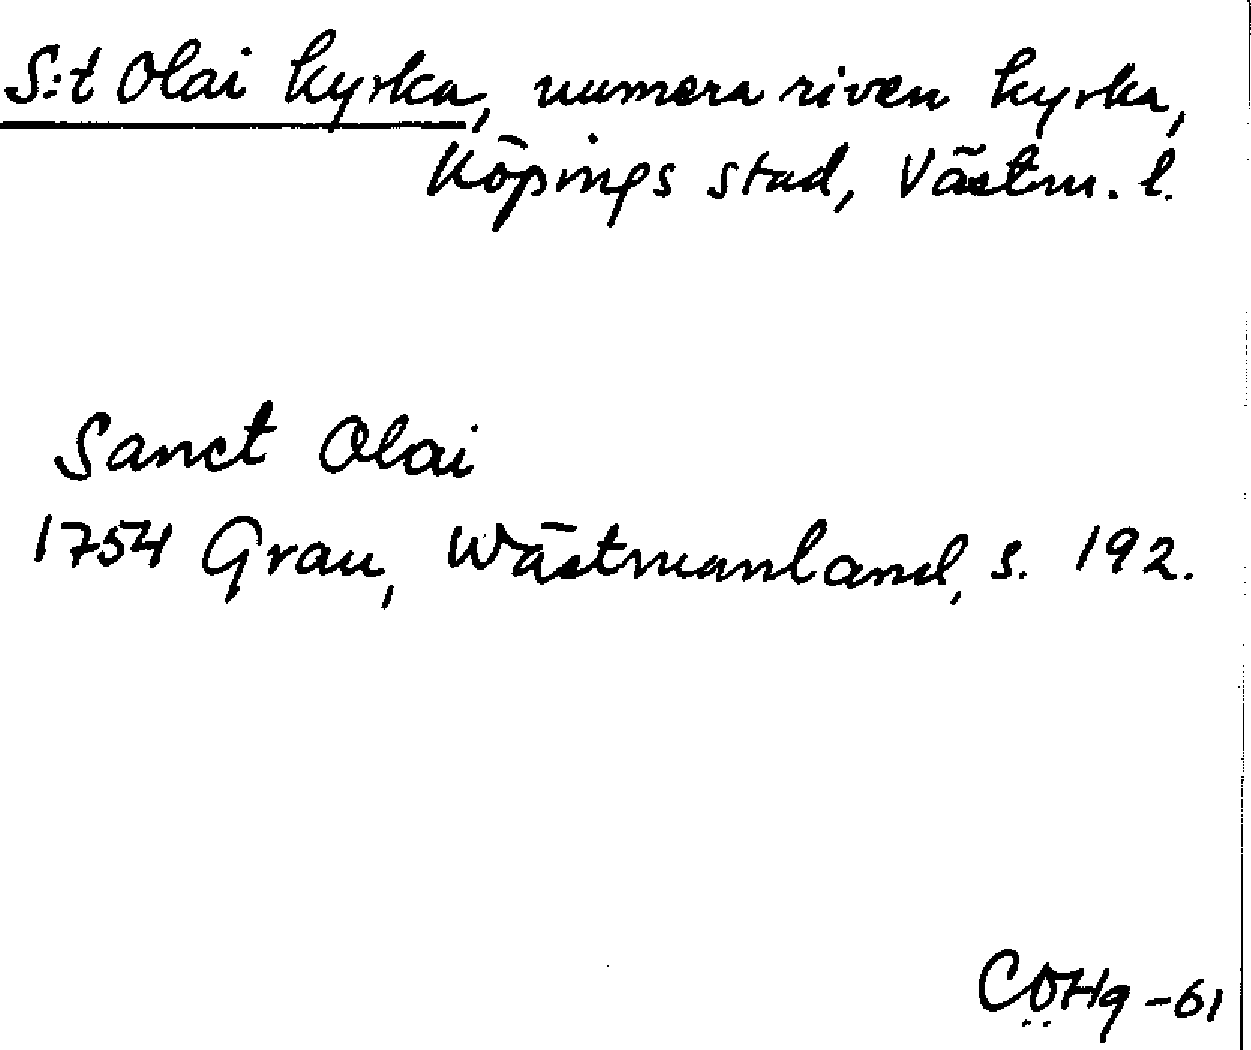 S:t Olai kyrka, numera riven kyrka,
Köpings stad, Västm. l.
Sanct Olai
1754 Grau, Wästmanland, s. 192.
COHg -61